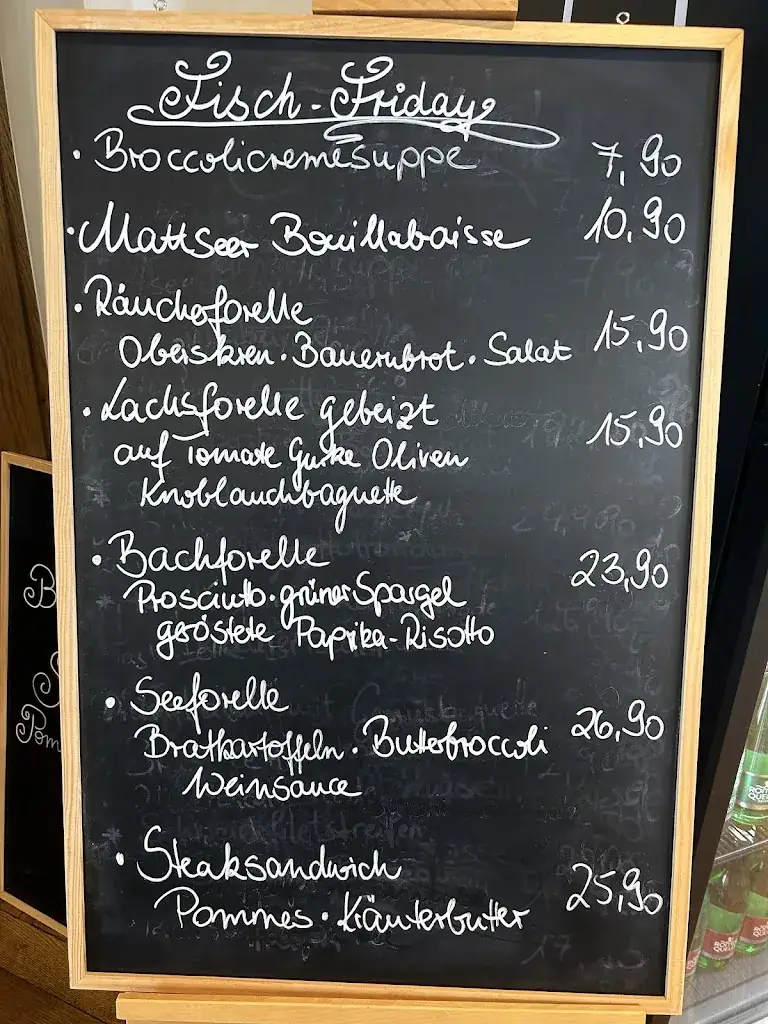 Fisch-Friday
• Broccolicremesuppe 7,90
• Mattseer Bouillabaisse 10,90
• Räucherforelle
Oberskren • Bauernbrot • Salat 15,90
• Lachsforelle gebeizt 15,90
auf Tomate Gurke Oliven
Knoblauchbaguette
• Bachforelle 23,90
Prosciutto • grüner Spargel
geröstete Paprika-Risotto
• Seeforelle
Bratkartoffeln • Butterbroccoli 26,90
Weinsauce
• Steaksandwich
Pommes • Kräuterbutter 25,90
B
S
Pom
RÖM
QUEL